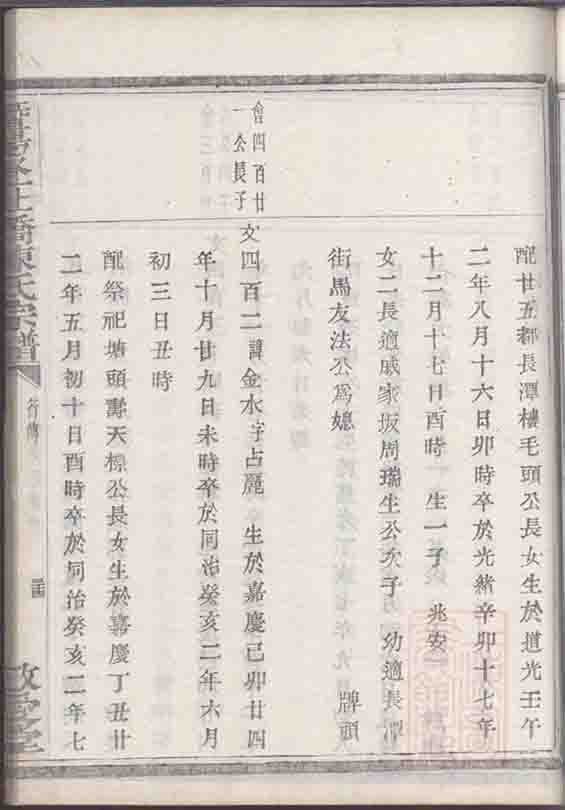 配廿五都長潭樓毛頭公長女生於道光壬午
二年八月十六日卯時卒於光緒辛卯十七年
十二月十七日酉時 一生一子 兆安
女二長適戚家坂周瑞生公次子 幼適長潭
街馬友法公爲媳 牌頭
會四百廿
一公長子
文四百二諱金水字占麗 生於嘉慶己卯廿四
年十月廿九日未時卒於同治癸亥二年六月
初三日丑時
配祭祀塘頭壽天標公長女生於嘉慶丁丑廿
二年五月初十日酉時卒於同治癸亥二年七
橋陳氏宗譜
行傳